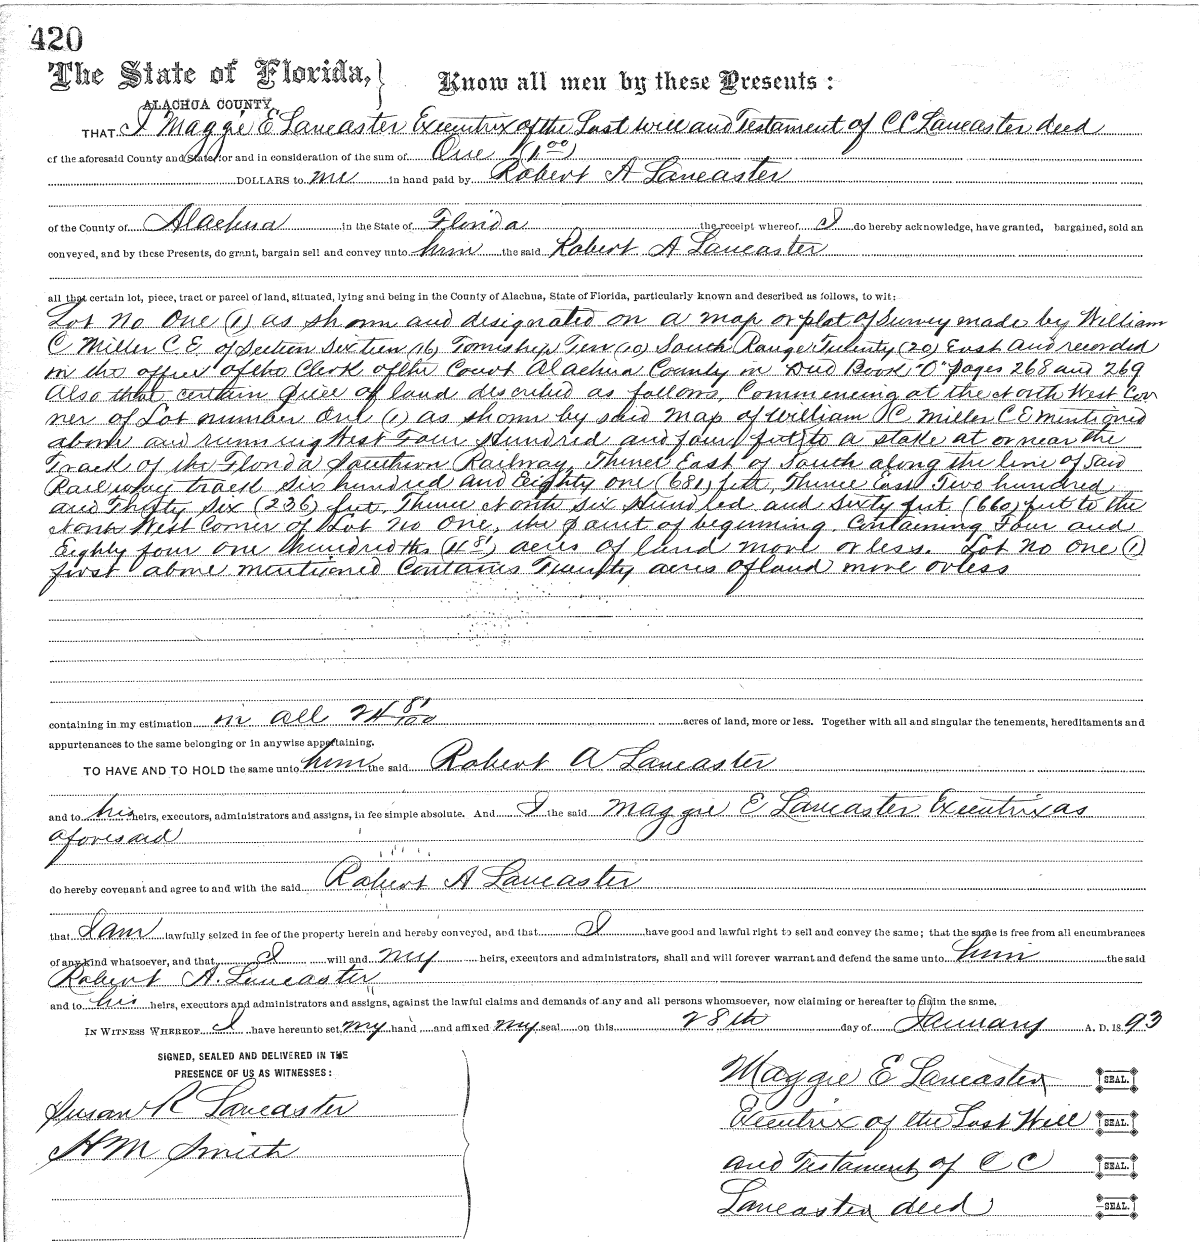 420
The State of Florida,
Know all men by these Presents:
ALACHUA COUNTY
THAT I Maggie E Lancaster Executrix of the Last will and Testament of C C Lancaster decd
of the aforesaid County and State, for and in consideration of the sum of One (1.00)
DOLLARS to me in hand paid by Robert A Lancaster
of the County of Alachua in the State of Florida the receipt whereof I do hereby acknowledge, have granted, bargained, sold an
conveyed, and by these Presents, do grant, bargain sell and convey unto him the said Robert A Lancaster
all that certain lot, piece, tract or parcel of land, situated, lying and being in the County of Alachua, State of Florida, particularly known and described as follows, to wit:
Lot No One (1) as shown and designated on a map or plat of Survey made by William
C Miller C.E. of Section Sixteen (16) Township Ten (10) South Range Twenty (20) East and recorded
in the office of the Clerk of the Court Alachua County in "Deed Book "O" pages 268 and 269
Also that certain piece of land described as follows, Commencing at the North West Cor
ner of Lot number One (1) as shown by said map of William C Miller C E mentioned
above and running West Four Hundred and four feet to a stake at or near the
Track of the Florida Southern Railway, Thence East of South along the line of said
Railway track six hundred and Eighty one (681) feet, Thence East Two hundred
and Thirty Six (236) feet, Thence North Six Hundred and sixty feet (660) feet to the
North West Corner of Lot No One, the point of beginning. Containing Four and
Eighty four one hundredths (4 81) acres of land more or less. Lot No One (1)
first above mentioned Contains Twenty acres of land more or less
containing in my estimation in all 24 81/100 acres of land, more or less. Together with all and singular the tenements, hereditaments and
appurtenances to the same belonging or in anywise appertaining.
TO HAVE AND TO HOLD the same unto him the said Robert A Lancaster
and to his heirs, executors, administrators and assigns, in fee simple absolute. And I the said Maggie E Lancaster Executrix as
aforesaid
do hereby covenant and agree to and with the said Robert A Lancaster
that I am lawfully seized in fee of the property herein and hereby conveyed, and that I have good and lawful right to sell and convey the same; that the same is free from all encumbrances
of any kind whatsoever, and that I will and my heirs, executors and administrators, shall and will forever warrant and defend the same unto him the said
Robert A. Lancaster
and to his heirs, executors and administrators and assigns, against the lawful claims and demands of any and all persons whomsoever, now claiming or hereafter to claim the same.
IN WITNESS WHEREOF I have hereunto set my hand and affixed my seal on this 28th day of January A. D. 1893
SIGNED, SEALED AND DELIVERED IN THE
PRESENCE OF US AS WITNESSES:
Susan R Lancaster
H M Smith
Maggie E Lancaster SEAL.
Executrix of the Last Will SEAL.
and Testament of C C SEAL.
Lancaster decd SEAL.